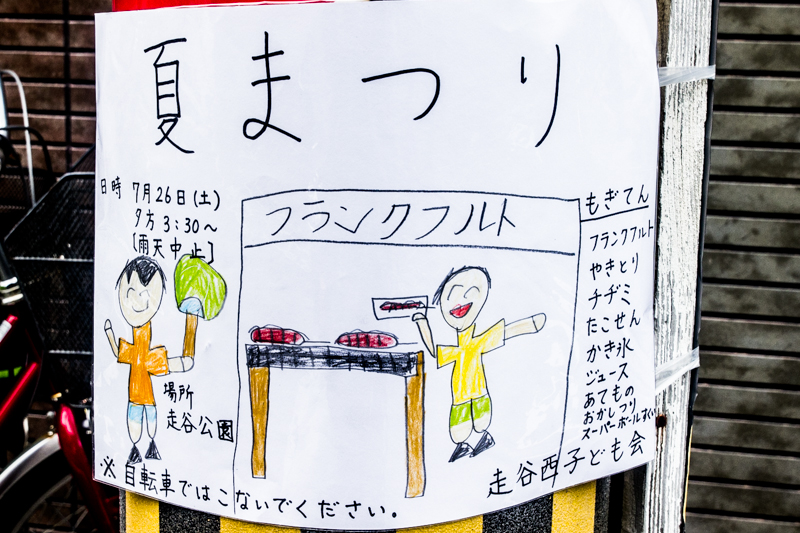 夏まつり
日時 7月26日(土)
夕方 3:30～
[雨天中止]
場所
走谷公園
フランクフルト
もぎてん
フランクフルト
やきとり
チヂミ
たこせん
かき氷
ジュース
あてもの
おかしつり
スーパーボールすくい
走谷西子ども会
※自転車ではこないでください。